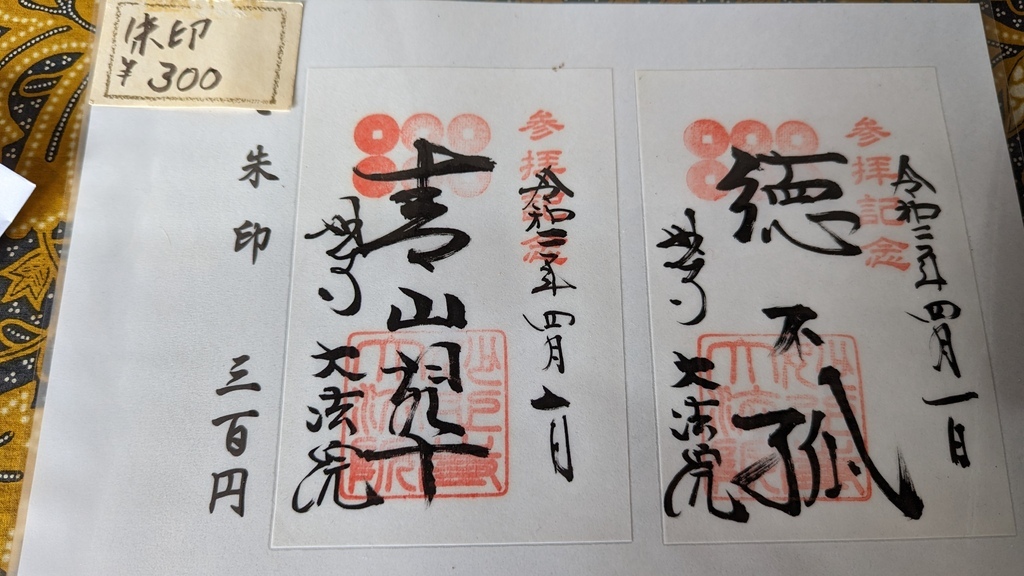 朱印
¥300
参拝記念
令和二年四月一日
徳不孤
妙心寺 大法院
参拝記念
令和二年四月一日
青山翠
妙心寺 大法院
朱印 三百円